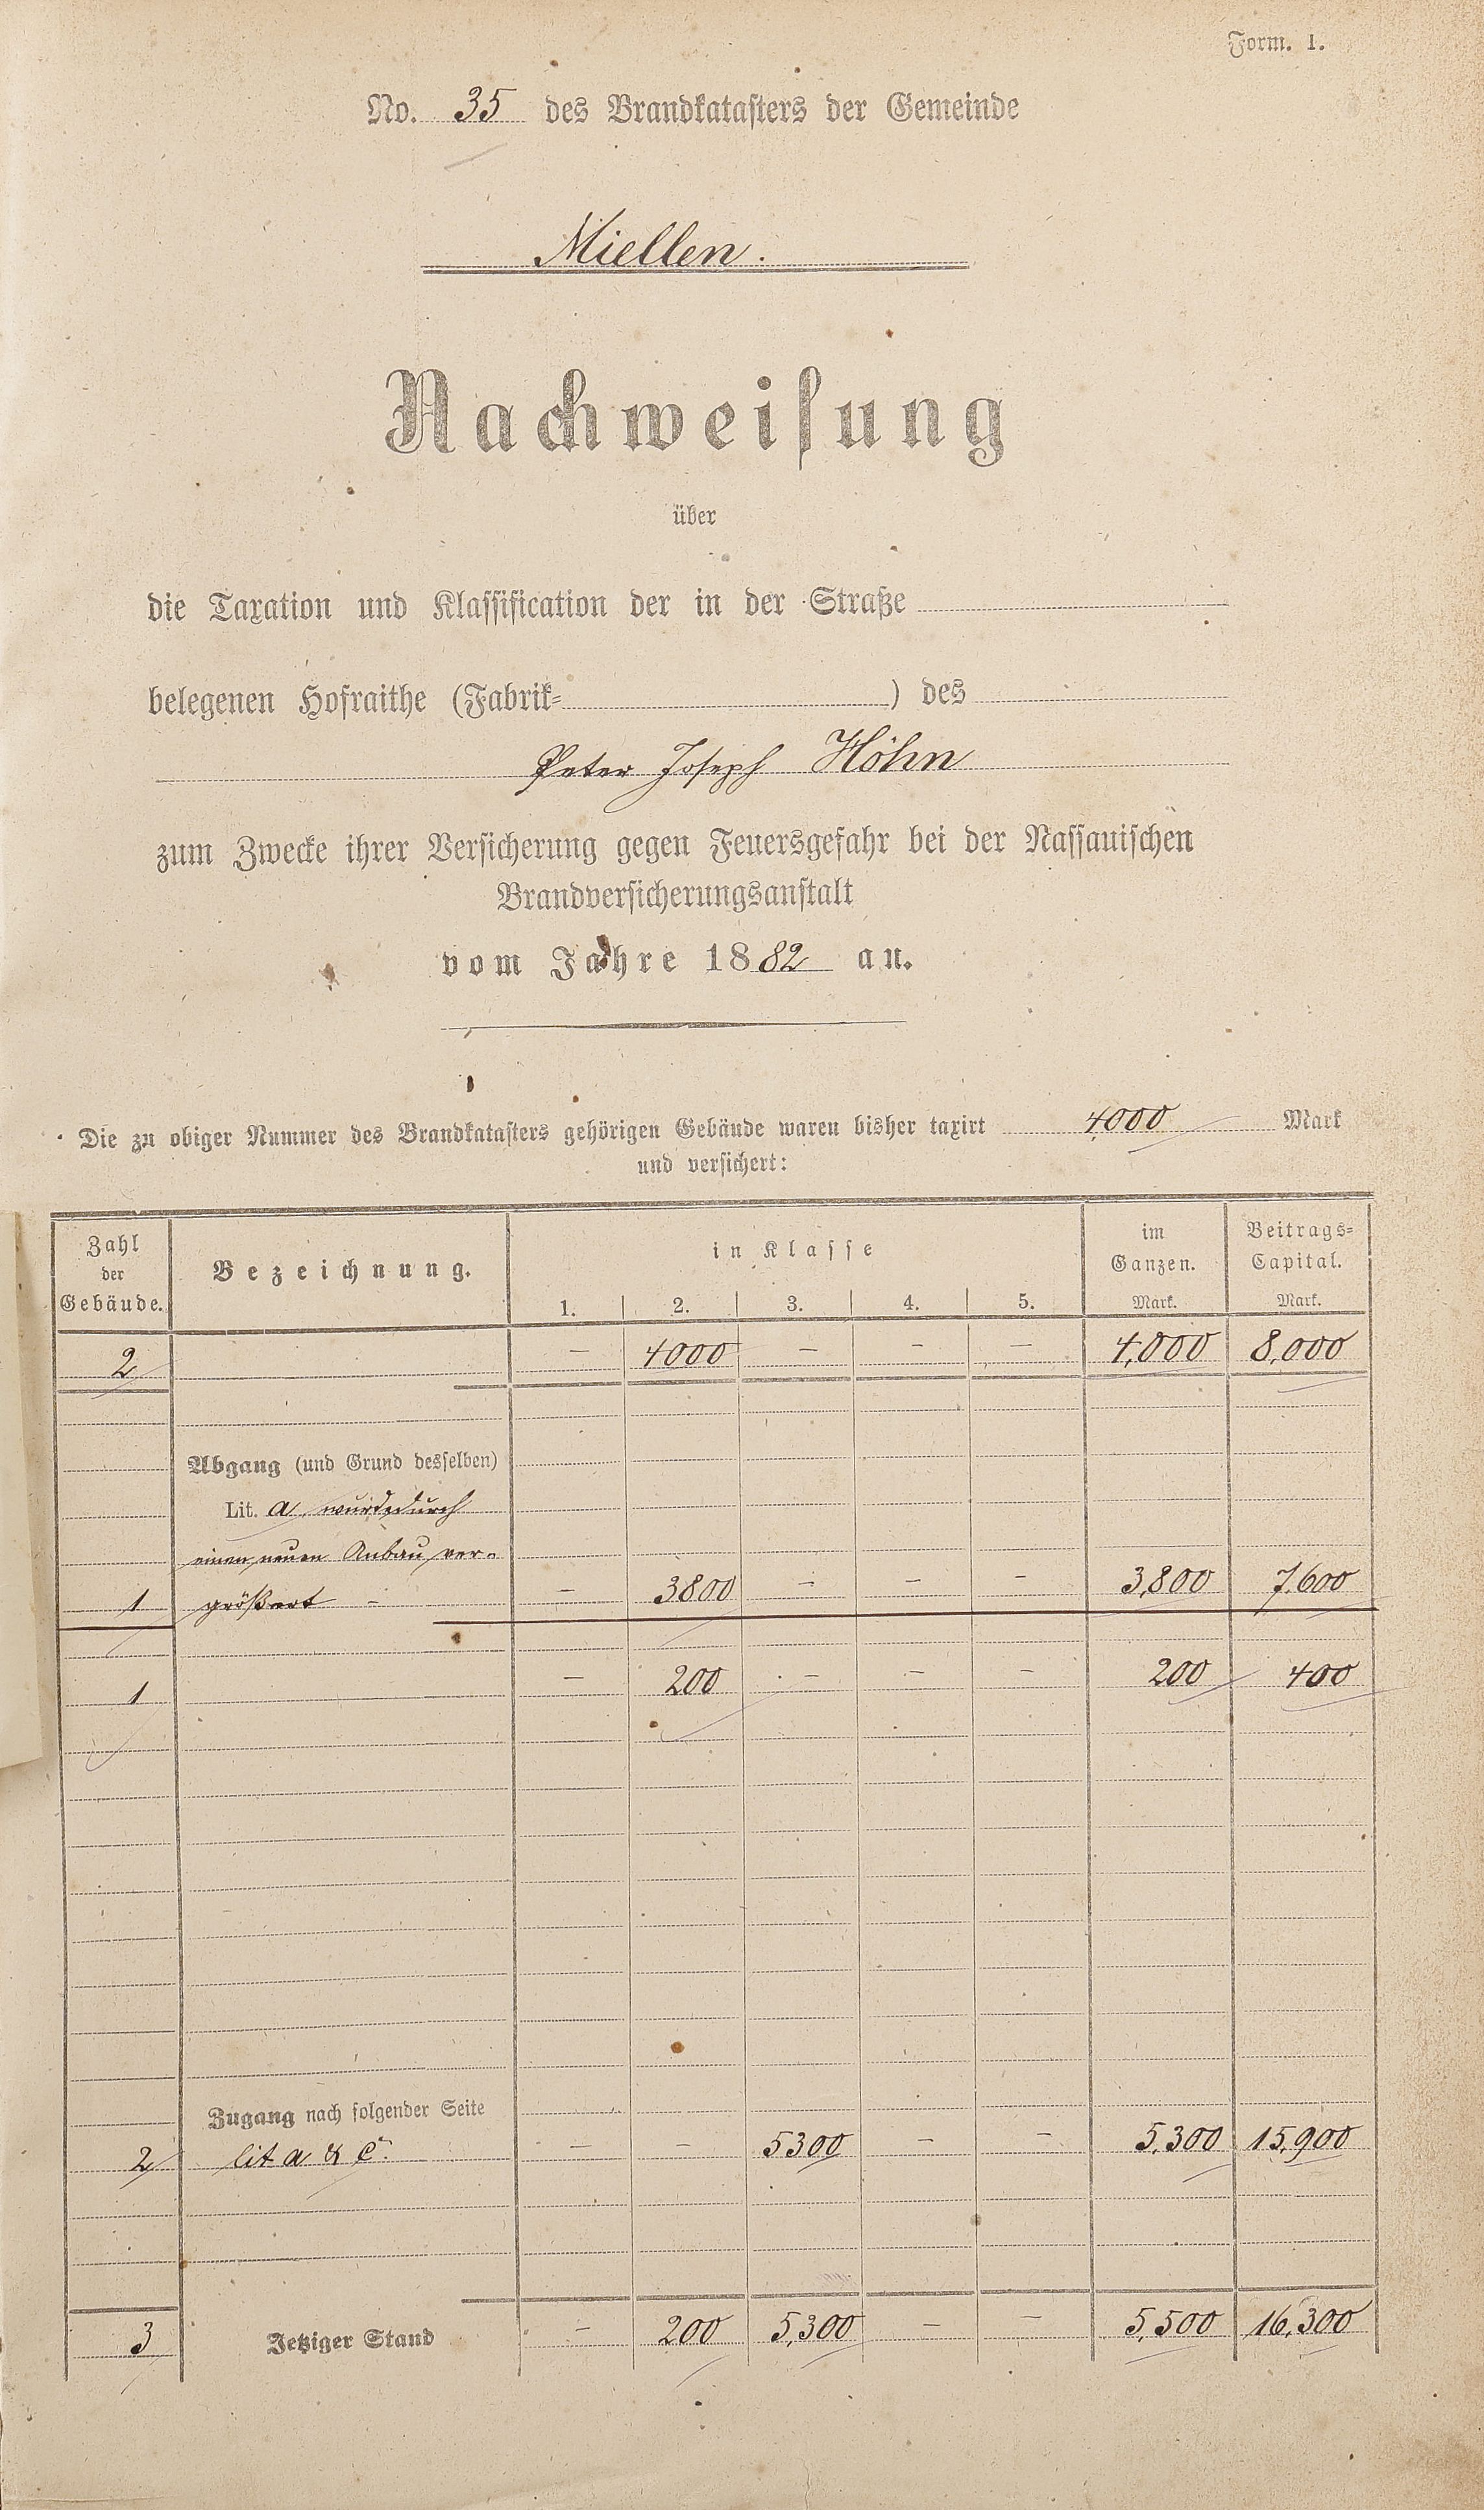 Form. 1.
No. 35 des Brandkatasters der Gemeinde
Miellen.
Nachweisung
über
die Taxation und Klassification der in der Straße
belegenen Hofraithe (Fabrik= ) des
Peter Joseph Höhn
zum Zwecke ihrer Versicherung gegen Feuersgefahr bei der Nassauischen
Brandversicherungsanstalt
vom Jahre 1882 an.
Die zu obiger Nummer des Brandkatasters gehörigen Gebäude waren bisher taxirt 4000 Mark
und versichert:
Zahl der Gebäude. Bezeichnung. in Klasse im Ganzen. Beitrags=Capital.
1. 2. 3. 4. 5. Mark. Mark.
2 — 4000 — — — 4,000 8,000
Abgang (und Grund desselben)
Lit. a, wurde durch
einen neuen Anbau ver-
1 größert — — 3800 — — — 3,800 7,600
1 — 200 — — — 200 400
Zugang nach folgender Seite
2 lit a & c. — — 5300 — — 5,300 15,900
3 Jetziger Stand — 200 5,300 — — 5,500 16,300